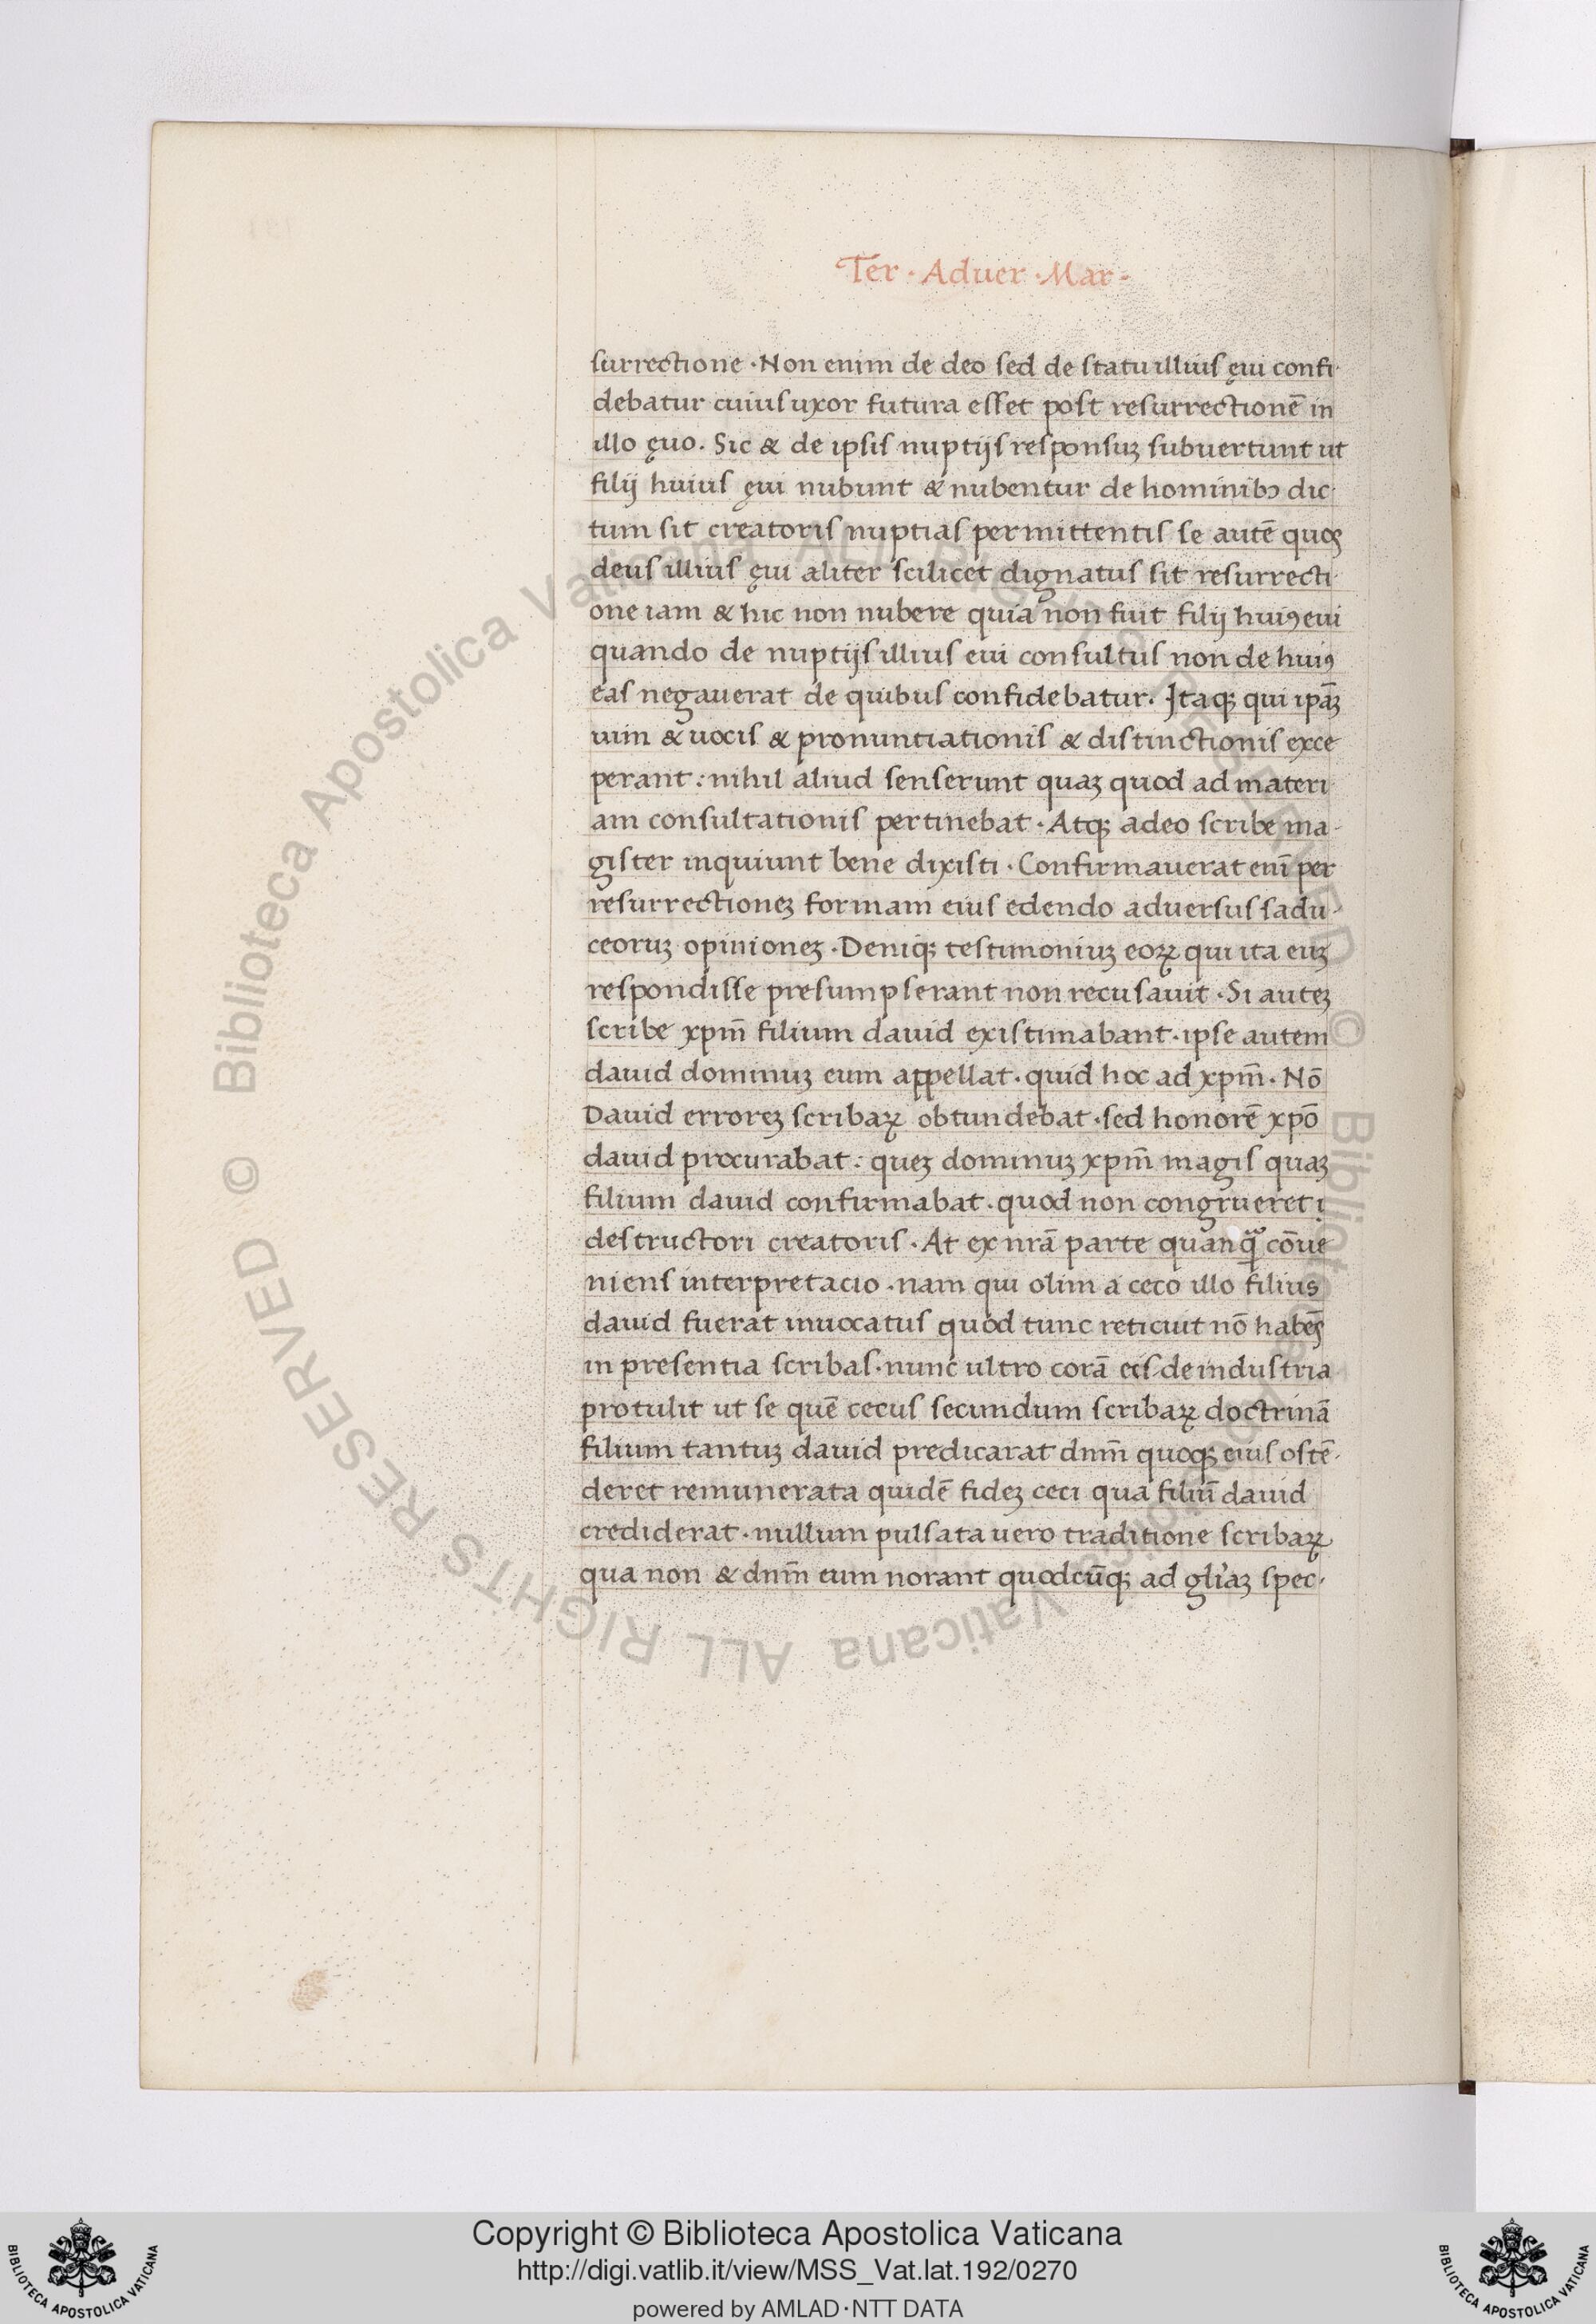 Ter · Aduer · Mar ·
surrectione · Non enim de deo sed de statu illius ęui confi
debatur cuius uxor futura esset post resurrectionē in
illo ęuo. Sic & de ipsis nuptijs responsuꝫ subuertunt ut
filij huius ęui nubunt & nubentur de hominibꝯ dic
tum sit creatoris nuptias permittentis se autē quos
deus illius ęui aliter scilicet dignatus sit resurrecti
one iam & hic non nubere quia non fuit filij huiꝰ eui
quando de nuptijs illius eui consultus non de huiꝰ
eas negauerat de quibus confidebatur. Itaqꝫ qui ipāꝫ
uim & uocis & pronuntiationis & distinctionis exce
perant : nihil aliud senserunt quaꝫ quod ad materi
am consultationis pertinebat · Atqꝫ adeo scribe ma-
gister inquiunt bene dixisti · Confirmauerat enī per
resurrectioneꝫ formam eius edendo aduersus sadu-
ceoruꝫ opinioneꝫ · Deniqꝫ testimoniuꝫ eoꝝ qui ita euꝫ
respondisse presumpserant non recusauit · Si auteꝫ
scribe xpm̄ filium dauid existimabant · ipse autem
dauid dominuꝫ eum appellat · quid hoc ad xpm̄ · Nō
Dauid erroreꝫ scribaꝝ obtundebat · sed honorē xpō
dauid procurabat : queꝫ dominuꝫ xpm̄ magis quaꝫ
filium dauid confirmabat · quod non congrueret i
destructori creatoris · At ex nrā parte quanqͣꝫ cōue
niens interpretacio · nam qui olim a ceco illo filius
dauid fuerat inuocatus quod tunc reticuit nō habēs
in presentia scribas · nunc ultro corā eis de industria
protulit ut se quē cecus secundum scribaꝝ doctrinā
filium tantuꝫ dauid predicarat dnm̄ quoqꝫ eius ostē-
deret remunerata quidē fideꝫ ceci qua filiū dauid
crediderat · nullum pulsata uero traditione scribaꝝ
qua non & dnm̄ eum norant quodcūqꝫ ad gl'iaꝫ spec-
Copyright © Biblioteca Apostolica Vaticana
http://digi.vatlib.it/view/MSS_Vat.lat.192/0270
powered by AMLAD · NTT DATA
© Biblioteca Apostolica Vaticana ALL RIGHTS RESERVED © Biblioteca Apostolica Vaticana ALL RIGHTS RESERVED
BIBLIOTECA APOSTOLICA VATICANA
BIBLIOTECA APOSTOLICA VATICANA